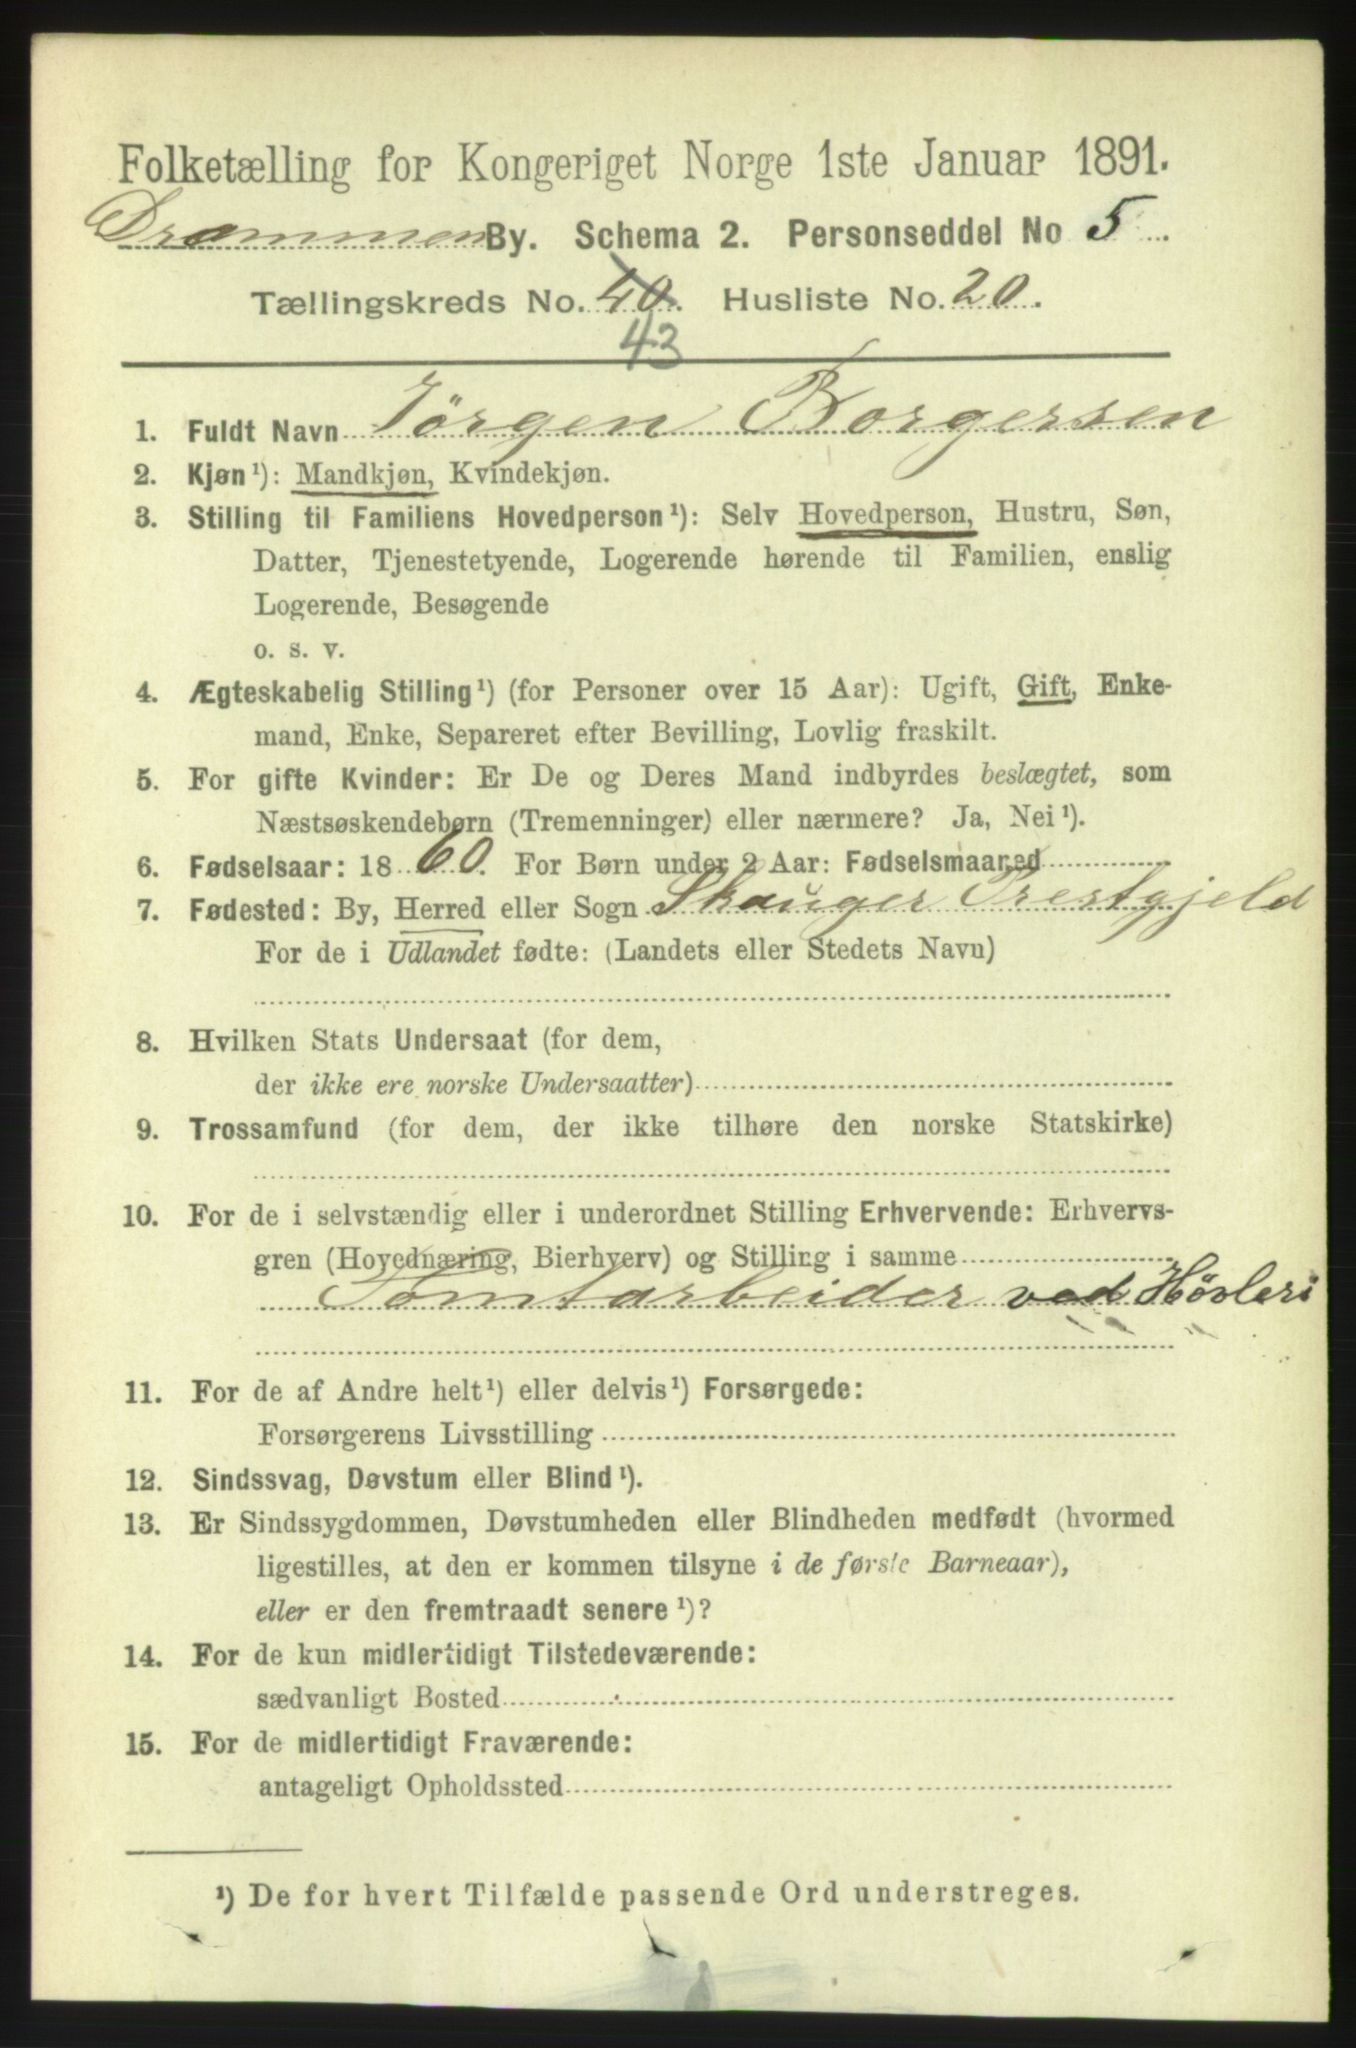 Folketælling for Kongeriget Norge 1ste Januar 1891.
Drammen By. Schema 2. Personseddel No 5
Tællingskreds No. 40. Husliste No. 20.
43
1. Fuldt Navn Jörgen Borgersen
2. Kjøn ¹): Mandkjøn, Kvindekjøn.
3. Stilling til Familiens Hovedperson ¹): Selv Hovedperson, Hustru, Søn,
Datter, Tjenestetyende, Logerende hørende til Familien, enslig
Logerende, Besøgende
o. s. v.
4. Ægteskabelig Stilling ¹) (for Personer over 15 Aar): Ugift, Gift, Enke-
mand, Enke, Separeret efter Bevilling, Lovlig fraskilt.
5. For gifte Kvinder: Er De og Deres Mand indbyrdes beslægtet, som
Næstsøskendebørn (Tremenninger) eller nærmere? Ja, Nei ¹).
6. Fødselsaar: 18 60. For Børn under 2 Aar: Fødselsmaaned
7. Fødested: By, Herred eller Sogn Skauger Prestgjeld
For de i Udlandet fødte: (Landets eller Stedets Navn)
8. Hvilken Stats Undersaat (for dem,
der ikke ere norske Undersaatter)
9. Trossamfund (for dem, der ikke tilhøre den norske Statskirke)
10. For de i selvstændig eller i underordnet Stilling Erhvervende: Erhvervs-
gren (Hovednæring, Bierhverv) og Stilling i samme
Tomtarbeider ved Hövleri
11. For de af Andre helt ¹) eller delvis ¹) Forsørgede:
Forsørgerens Livsstilling
12. Sindssvag, Døvstum eller Blind ¹).
13. Er Sindssygdommen, Døvstumheden eller Blindheden medfødt (hvormed
ligestilles, at den er kommen tilsyne i de første Barneaar),
eller er den fremtraadt senere ¹)?
14. For de kun midlertidigt Tilstedeværende:
sædvanligt Bosted
15. For de midlertidigt Fraværende:
antageligt Opholdssted
¹) De for hvert Tilfælde passende Ord understreges.